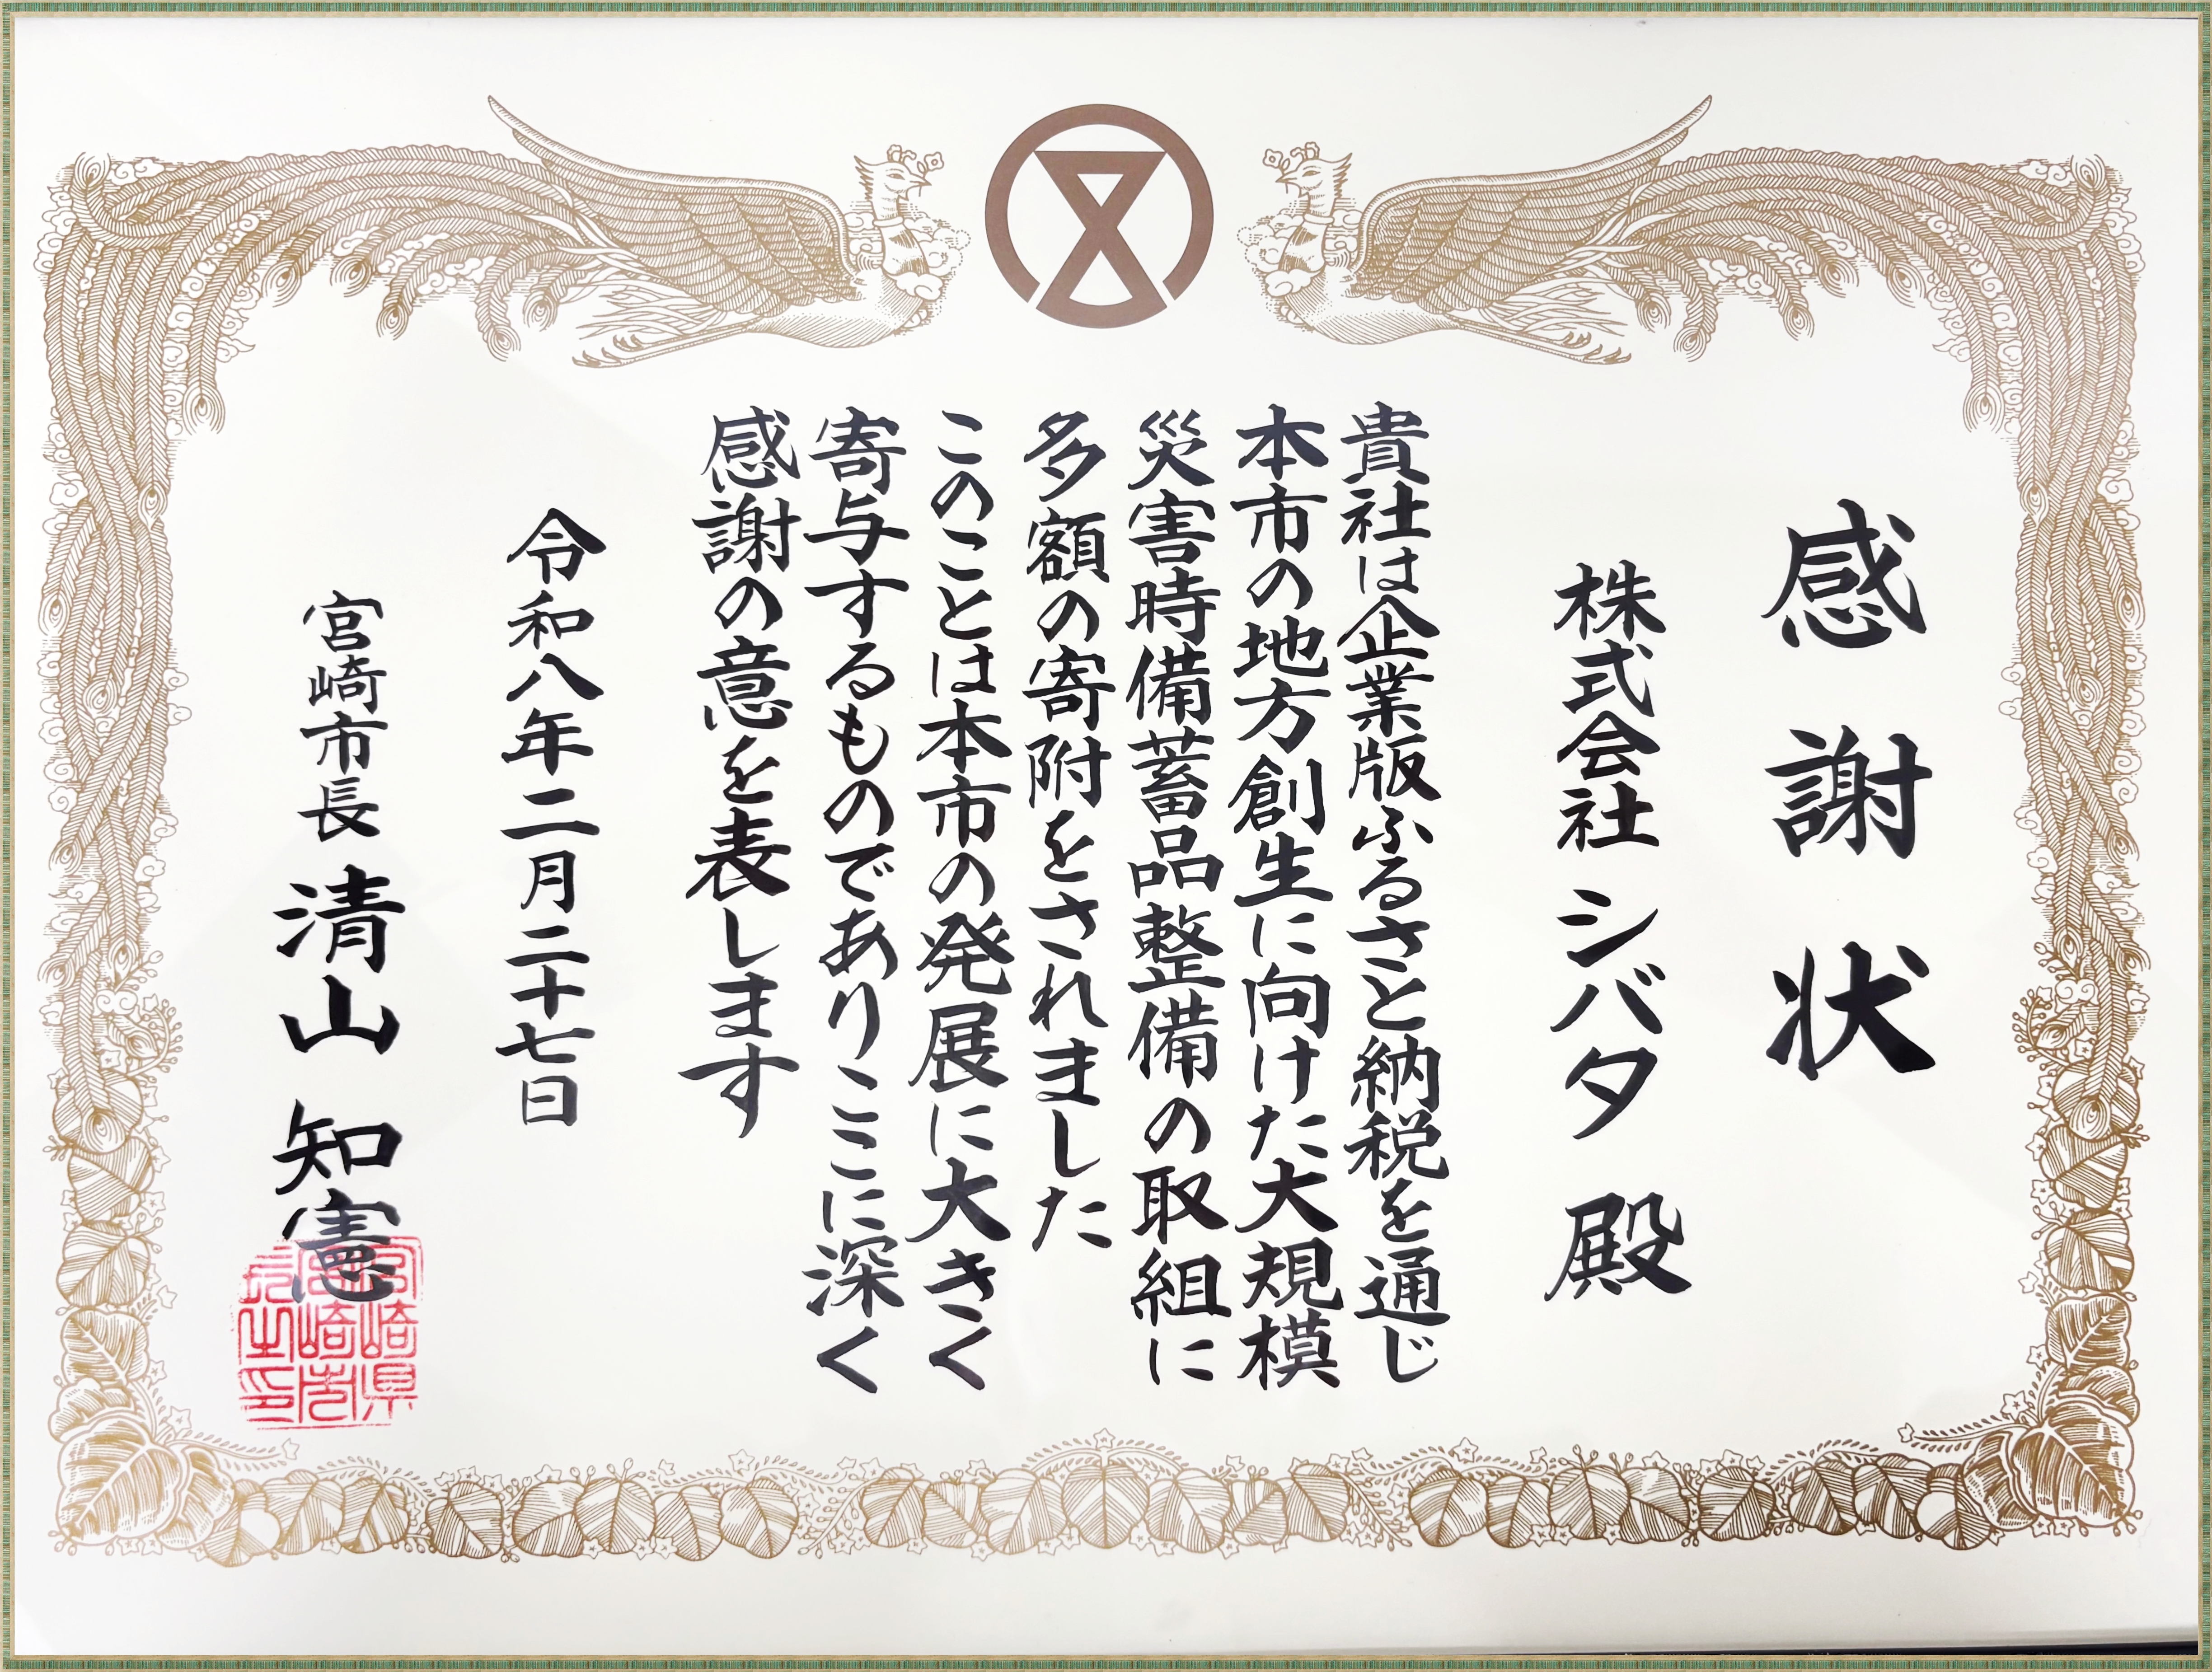 感謝状
株式会社シバタ 殿
貴社は企業版ふるさと納税を通じ
本市の地方創生に向けた大規模
災害時備蓄品整備の取組に
多額の寄附をされました
このことは本市の発展に大きく
寄与するものでありここに深く
感謝の意を表します
令和八年二月二十七日
宮崎市長 清山 知憲
宮崎県
宮崎市
長之印